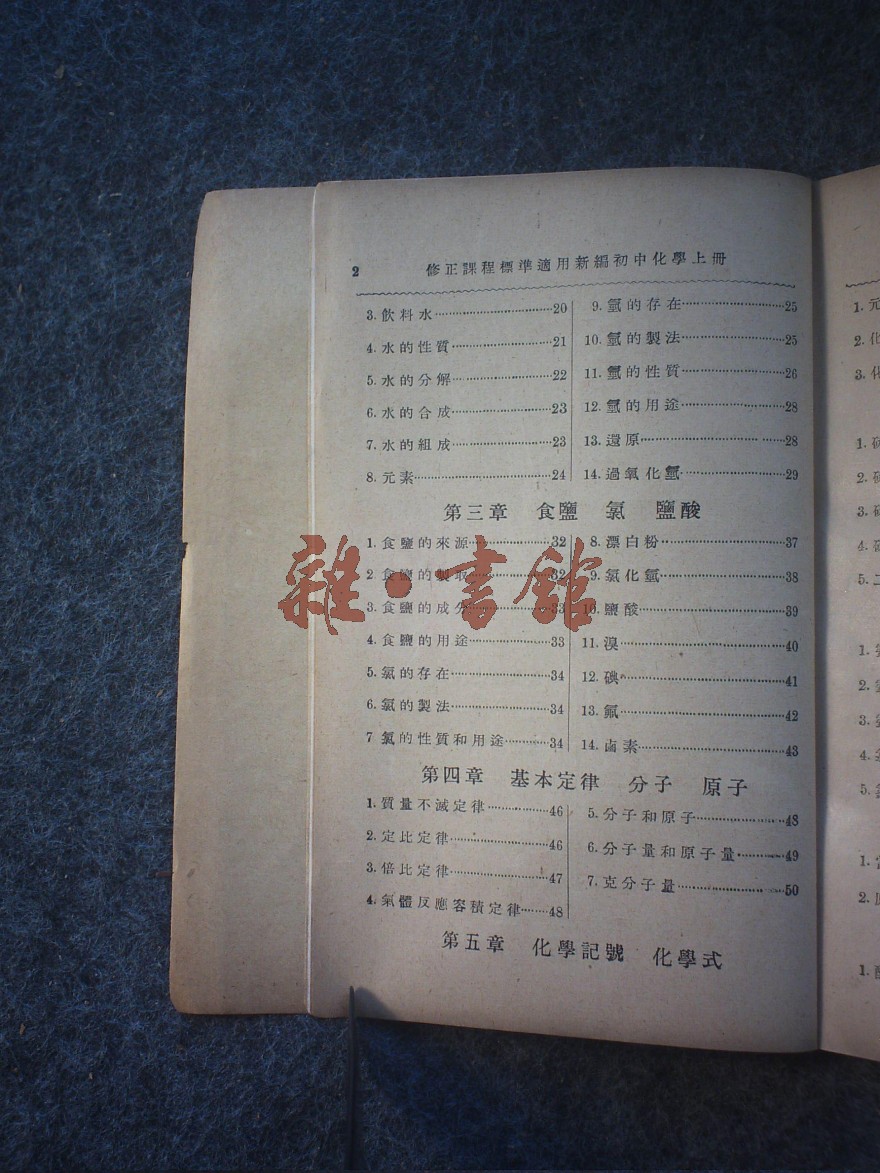 2 修正課程標準適用新編初中化學上冊
3. 飲料水…………20
4. 水的性質…………21
5. 水的分解…………22
6. 水的合成…………23
7. 水的組成…………23
8. 元素…………24
9. 氫的存在…………25
10. 氫的製法…………25
11. 氫的性質…………26
12. 氫的用途…………28
13. 還原…………28
14. 過氧化氫…………29
第三章 食鹽 氯 鹽酸
1. 食鹽的來源…………32
2 食鹽的製取…………32
3. 食鹽的成分…………33
4. 食鹽的用途…………33
5. 氯的存在…………34
6. 氯的製法…………34
7 氯的性質和用途…………34
8. 漂白粉…………37
9. 氯化氫…………38
10. 鹽酸…………39
11. 溴…………40
12. 碘…………41
13. 氟…………42
14. 鹵素…………43
第四章 基本定律 分子 原子
1. 質量不滅定律…………46
2. 定比定律…………46
3. 倍比定律…………47
4. 氣體反應容積定律…………48
5. 分子和原子…………48
6. 分子量和原子量…………49
7. 克分子量…………50
第五章 化學記號 化學式
雜·書館
1. 元
2. 化
3. 化